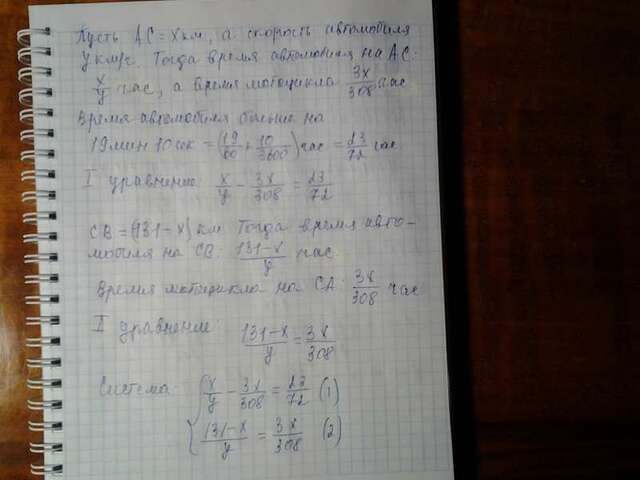 Пусть AC = x км, а скорость автомобиля
y км/ч. Тогда время автомобиля на AC:
x/y час, а время мотоцикла 3x/308 час
Время автомобиля больше на
19 мин 10 сек = (19/60 + 10/3600) час = 23/72 час
I уравнение x/y - 3x/308 = 23/72
CB = (131-x) км Тогда время авто-
мобиля на CB: 131-x/y час.
Время мотоцикла на CA: 3x/308 час
II уравнение: 131-x/y = 3x/308
Система: { x/y - 3x/308 = 23/72 (1)
131-x/y = 3x/308 (2)